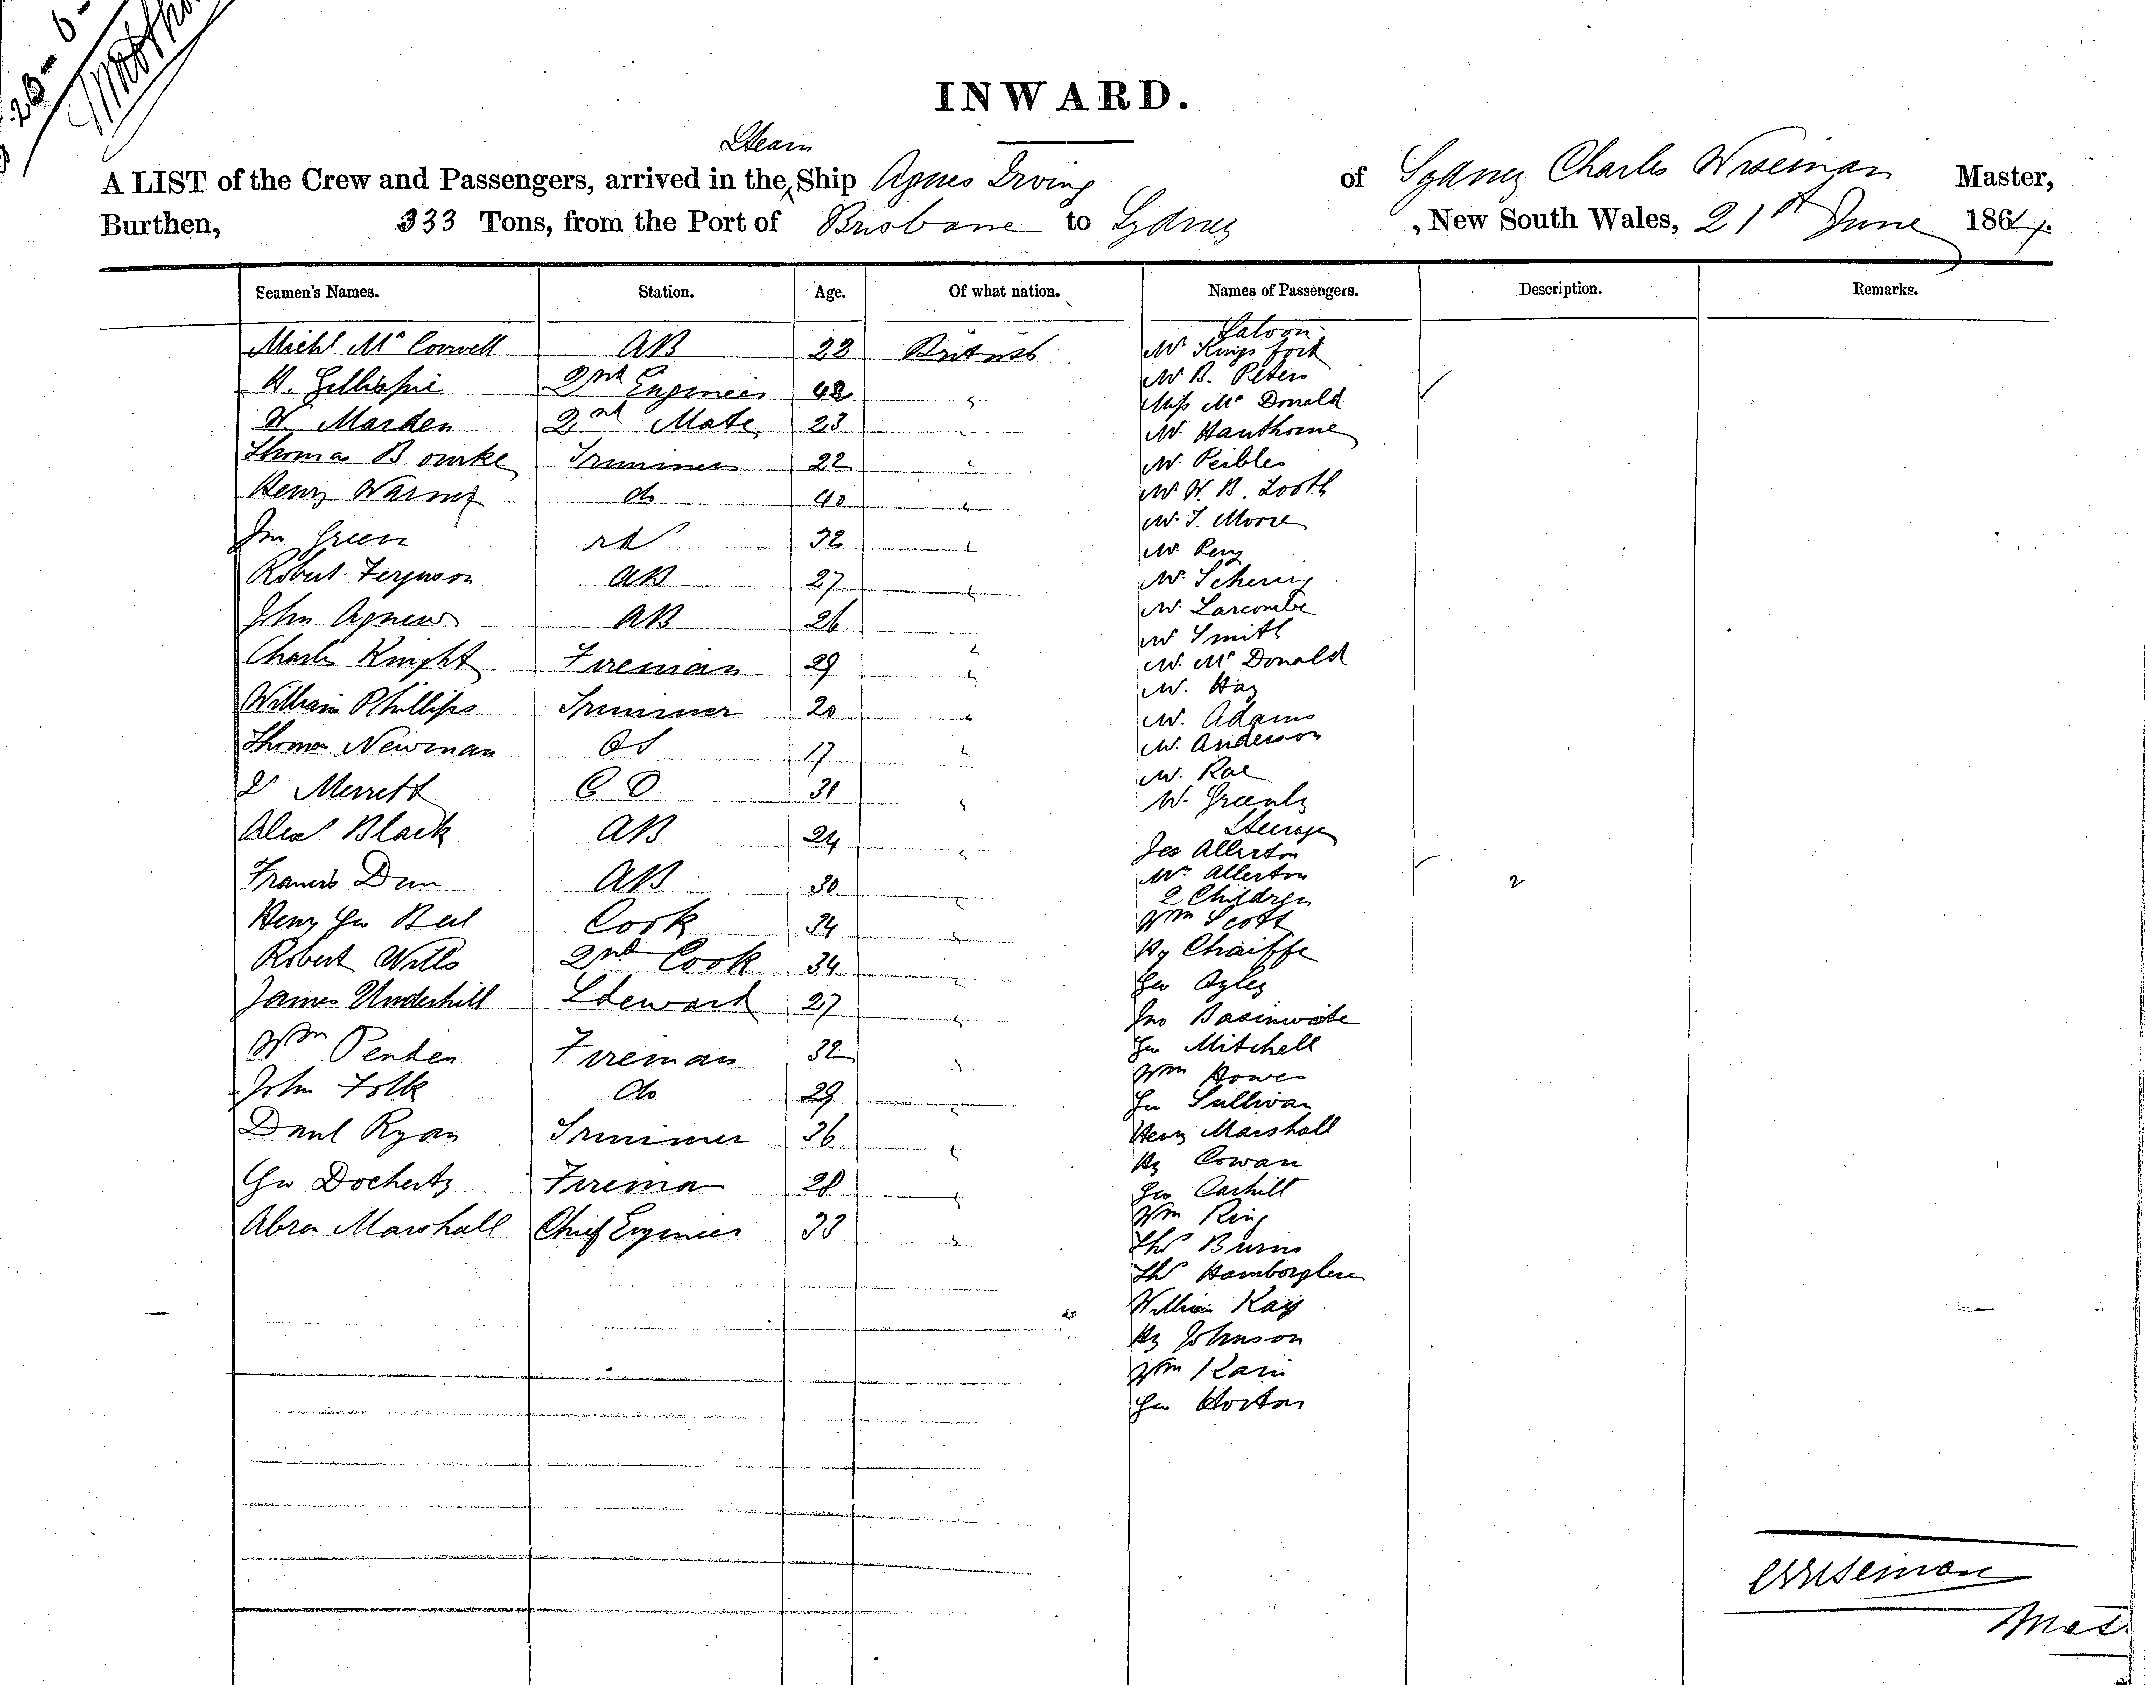 23-6-
INWARD.
Steam
A LIST of the Crew and Passengers, arrived in the Ship Agnes Irving of Sydney Charles Wiseman Master,
Burthen, 333 Tons, from the Port of Brisbane to Sydney , New South Wales, 21st June 1864.
Seamen's Names. Station. Age. Of what nation. Names of Passengers. Description. Remarks.
Saloon
Michl McConwell AB 22 British Mr Kingsford
Mr B. Peters
H. Gillespie 2nd Engineer 42 " Miss McDonald
W Marden 2nd Mate 23 " Mr Hawthorne
Thomas Bourke Trimmer 22 " Mr Peibles
Henry Waring do 40 " Mr W. B. Tooth
Mr T. Moore
Jno Green 32 " Mr Perry
Robert Ferguson AB 27 " Mr Schering
Mr Larcombe
John Agnew AB 26 " Mr Smith
Charles Knight Fireman 29 " Mr McDonald
Mr. Hay
William Phillips Trimmer 20 " Mr. Adams
Thomas Newman OS 17 " Mr. Anderson
Mr. Rae
Merrett 31 " Mr. Greenly
Steerage
Alex Black AB 24 " Jas Allerton
Francis Dun AB 30 " Mrs Allerton 2
2 Children
Henry Geo Beil Cook 34 " Wm Scott
Robert Wills 2nd Cook 34 " Hy Chaiffe
Geo Ayley
James Underhill Steward 27 " Jno
Wm Penden Fireman 32 " Geo Mitchell
Wm Howes
John Folk do 29 " Geo Sullivan
Danl Ryan Trimmer 36 " Henry Marshall
Hy Cowan
Geo Docherty Firema 28 " Geo Cashill
Abra Marshall Chief Engineer 33 " Wm King
Ths Burns
Ths
William Kay
Hy Johnson
Wm Kain
Geo Horton
CWiseman
Mas